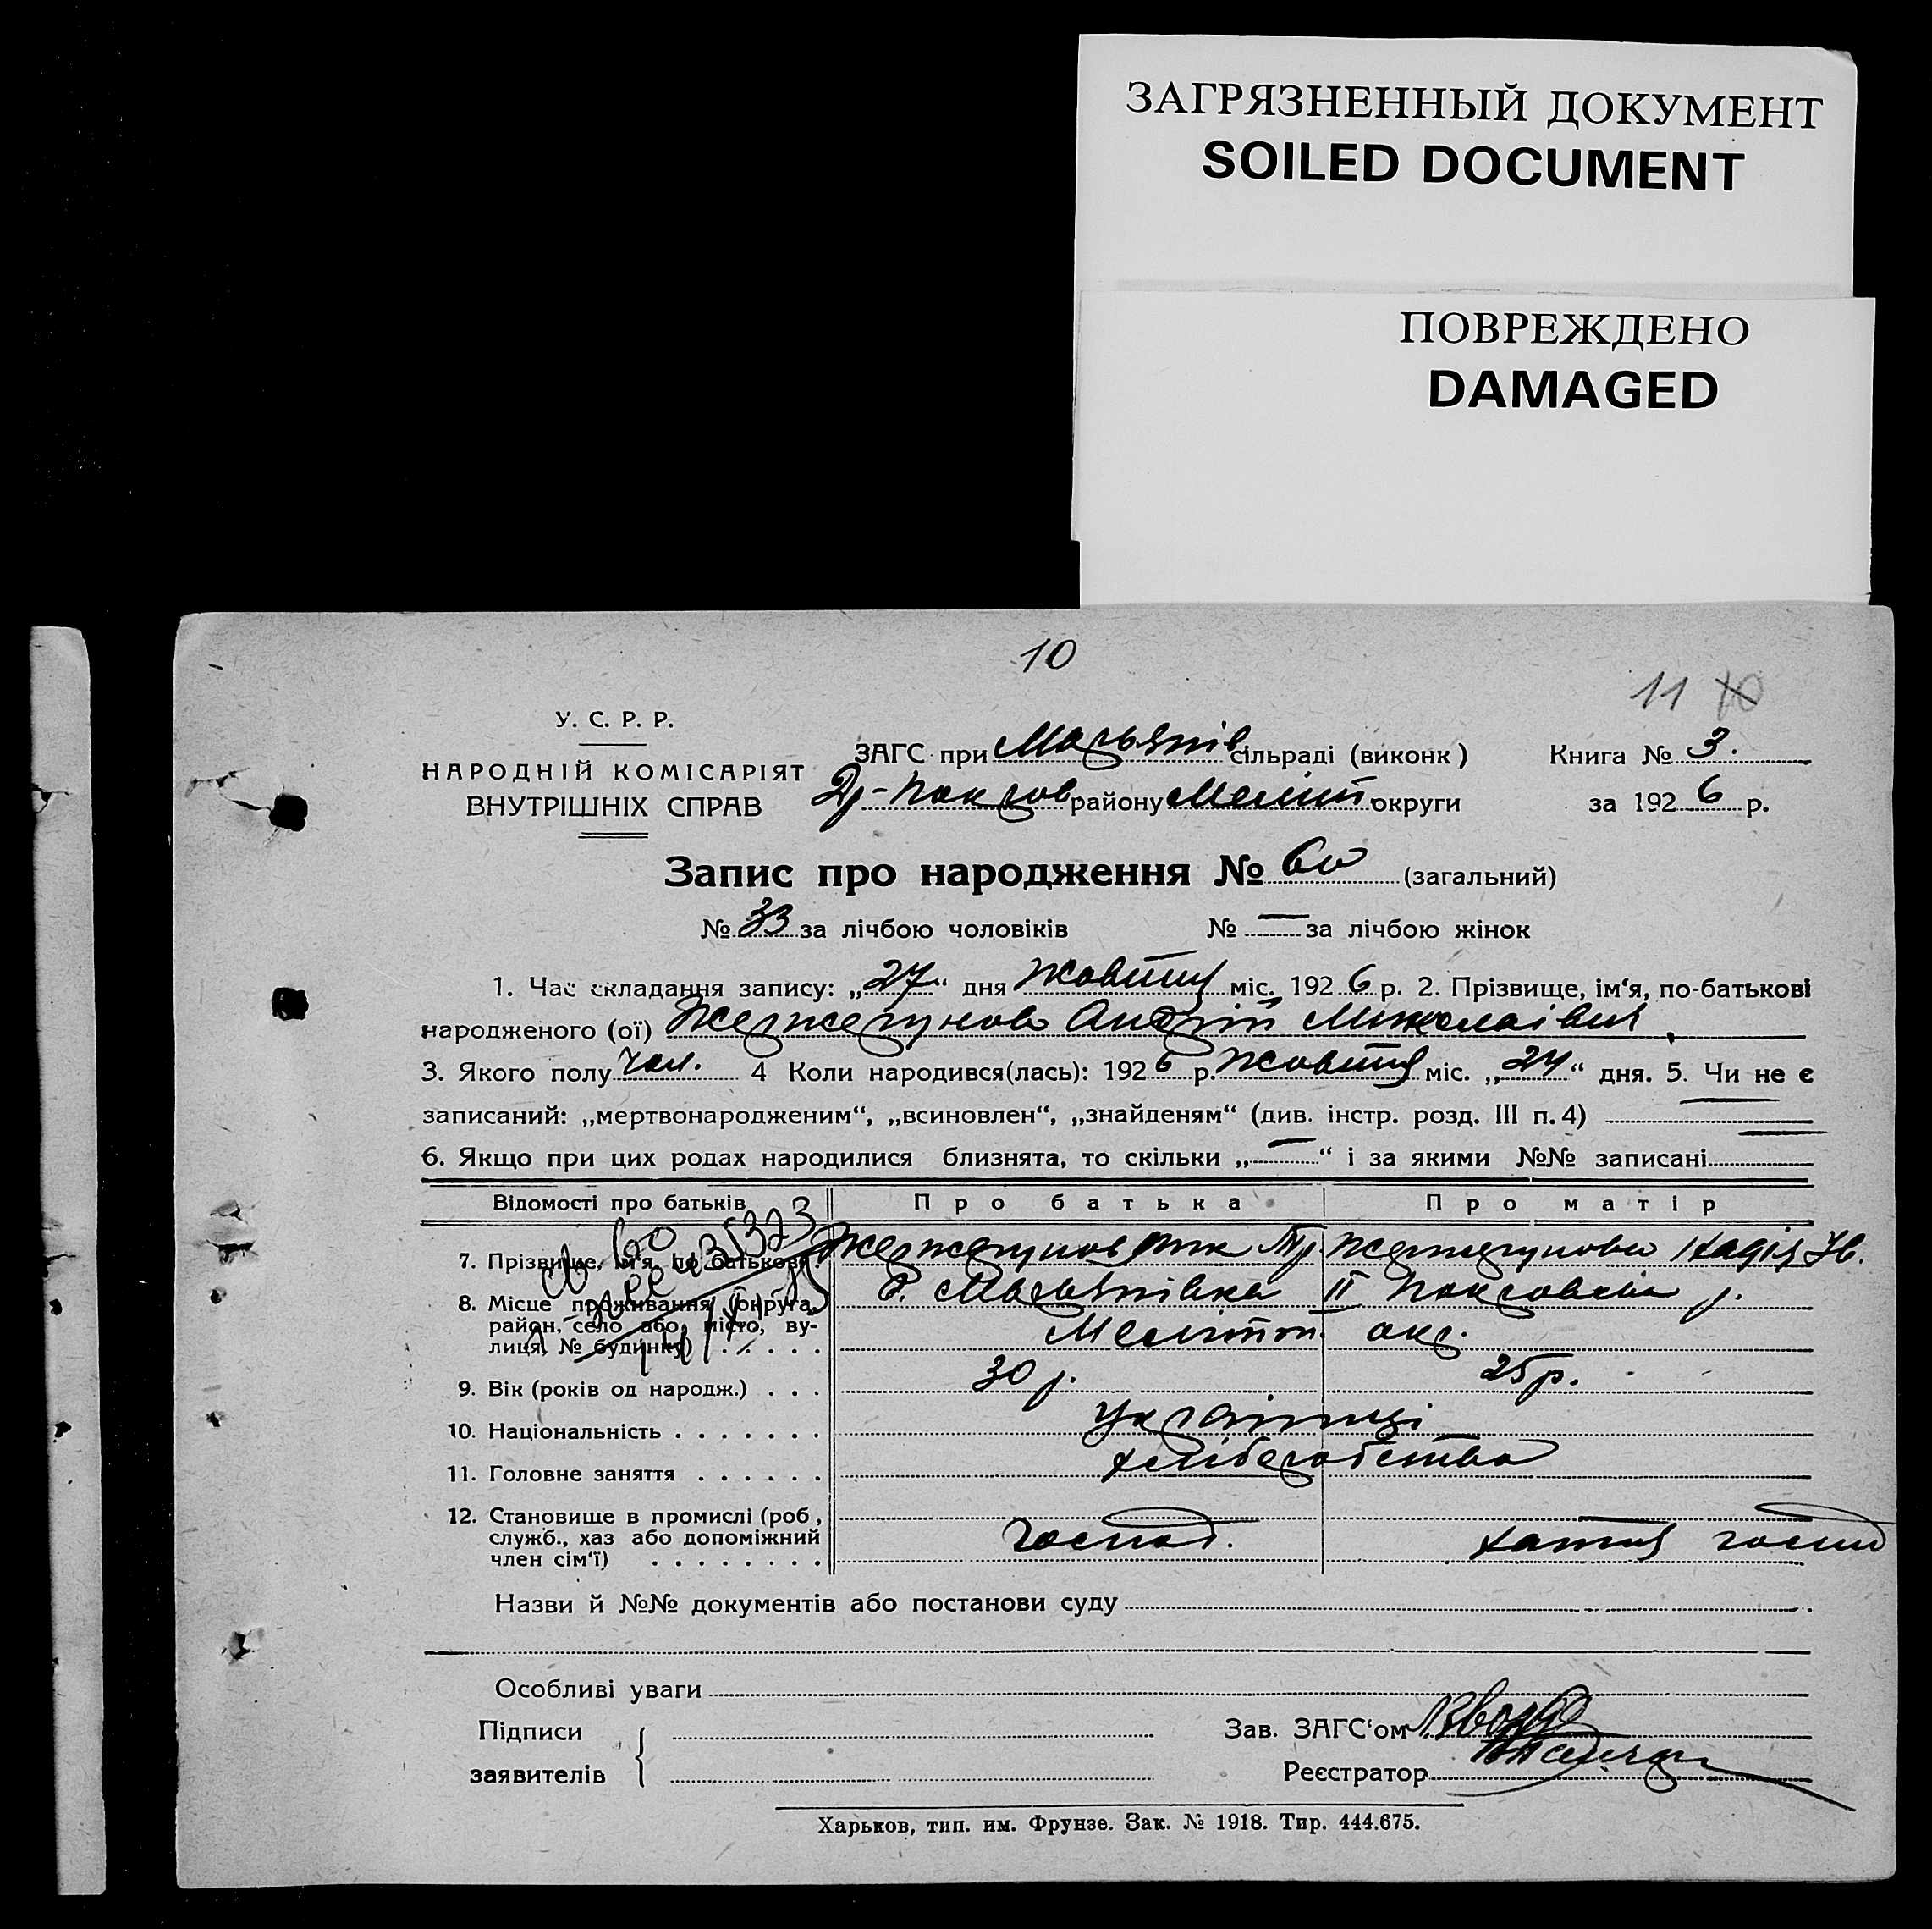 ЗАГРЯЗНЕННЫЙ ДОКУМЕНТ
SOILED DOCUMENT
ПОВРЕЖДЕНО
DAMAGED
10
11
У. С. Р. Р.
НАРОДНІЙ КОМІСАРІЯТ
ВНУТРІШНІХ СПРАВ
ЗАГС при Мар'янів сільраді (виконк)
Др-Покров району Меліт. округи
Книга № 3.
за 1926 р.
Запис про народження № 60 (загальний)
№ 33 за лічбою чоловіків № — за лічбою жінок
1. Час складання запису: „27“ дня Жовтня міс. 1926 р. 2. Прізвище, ім‘я, по-батькові
народженого (ої) Андрій Миколаївич
3. Якого полу чол. 4 Коли народився(лась): 1926 р. Жовтня міс. „24“ дня. 5. Чи не є
записаний: „мертвонародженим“, „всиновлен“, „знайденям“ (див. інстр. розд. III п. 4) —
6. Якщо при цих родах народилися близнята, то скільки „—“ і за якими №№ записані —
Відомості про батьків Про батька Про матір
7. Прізвище, ім‘я, по батькові Надія Ів.
8. Місце проживання (округа, район, село або місто, вулиця, № будинку) . . . . . С. Мар'янівка II Покровськ р.
Мелітоп. окр.
9. Вік (років од народж.) . . . 30 р. 25 р.
10. Національність . . . . . . . Українці
11. Головне заняття . . . . . . хліборобство
12. Становище в промислі (роб, служб., хаз або допоміжний член сім‘ї) . . . . . . . . господ. хатня господ
Назви й №№ документів або постанови суду
Особливі уваги
Підписи
заявителів
Зав. ЗАГС‘ом
Реєстратор
Харьков, тип. им. Фрунзе. Зак. № 1918. Тир. 444.675.